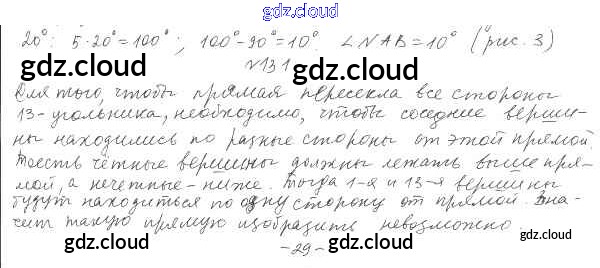 gdz.cloud
20°: 5·20°=100°; 100°-90°=10°. ∠NAB=10° (рис. 3)
gdz.cloud gdz.cloud
№131
Для того, чтобы прямая пересекла все стороны
13-угольника, необходимо, чтобы соседние верши-
ны находились по разные стороны от этой прямой.
Тоесть чётные вершины должны лежать выше пря-
мой, а нечетные - ниже. Тогда 1-я и 13-я вершины
будут находиться по одну сторону от прямой. Зна-
gdz.cloud gdz.cloud
чит такую прямую изобразить невозможно
gdz.cloud
-29-
gdz.cloud